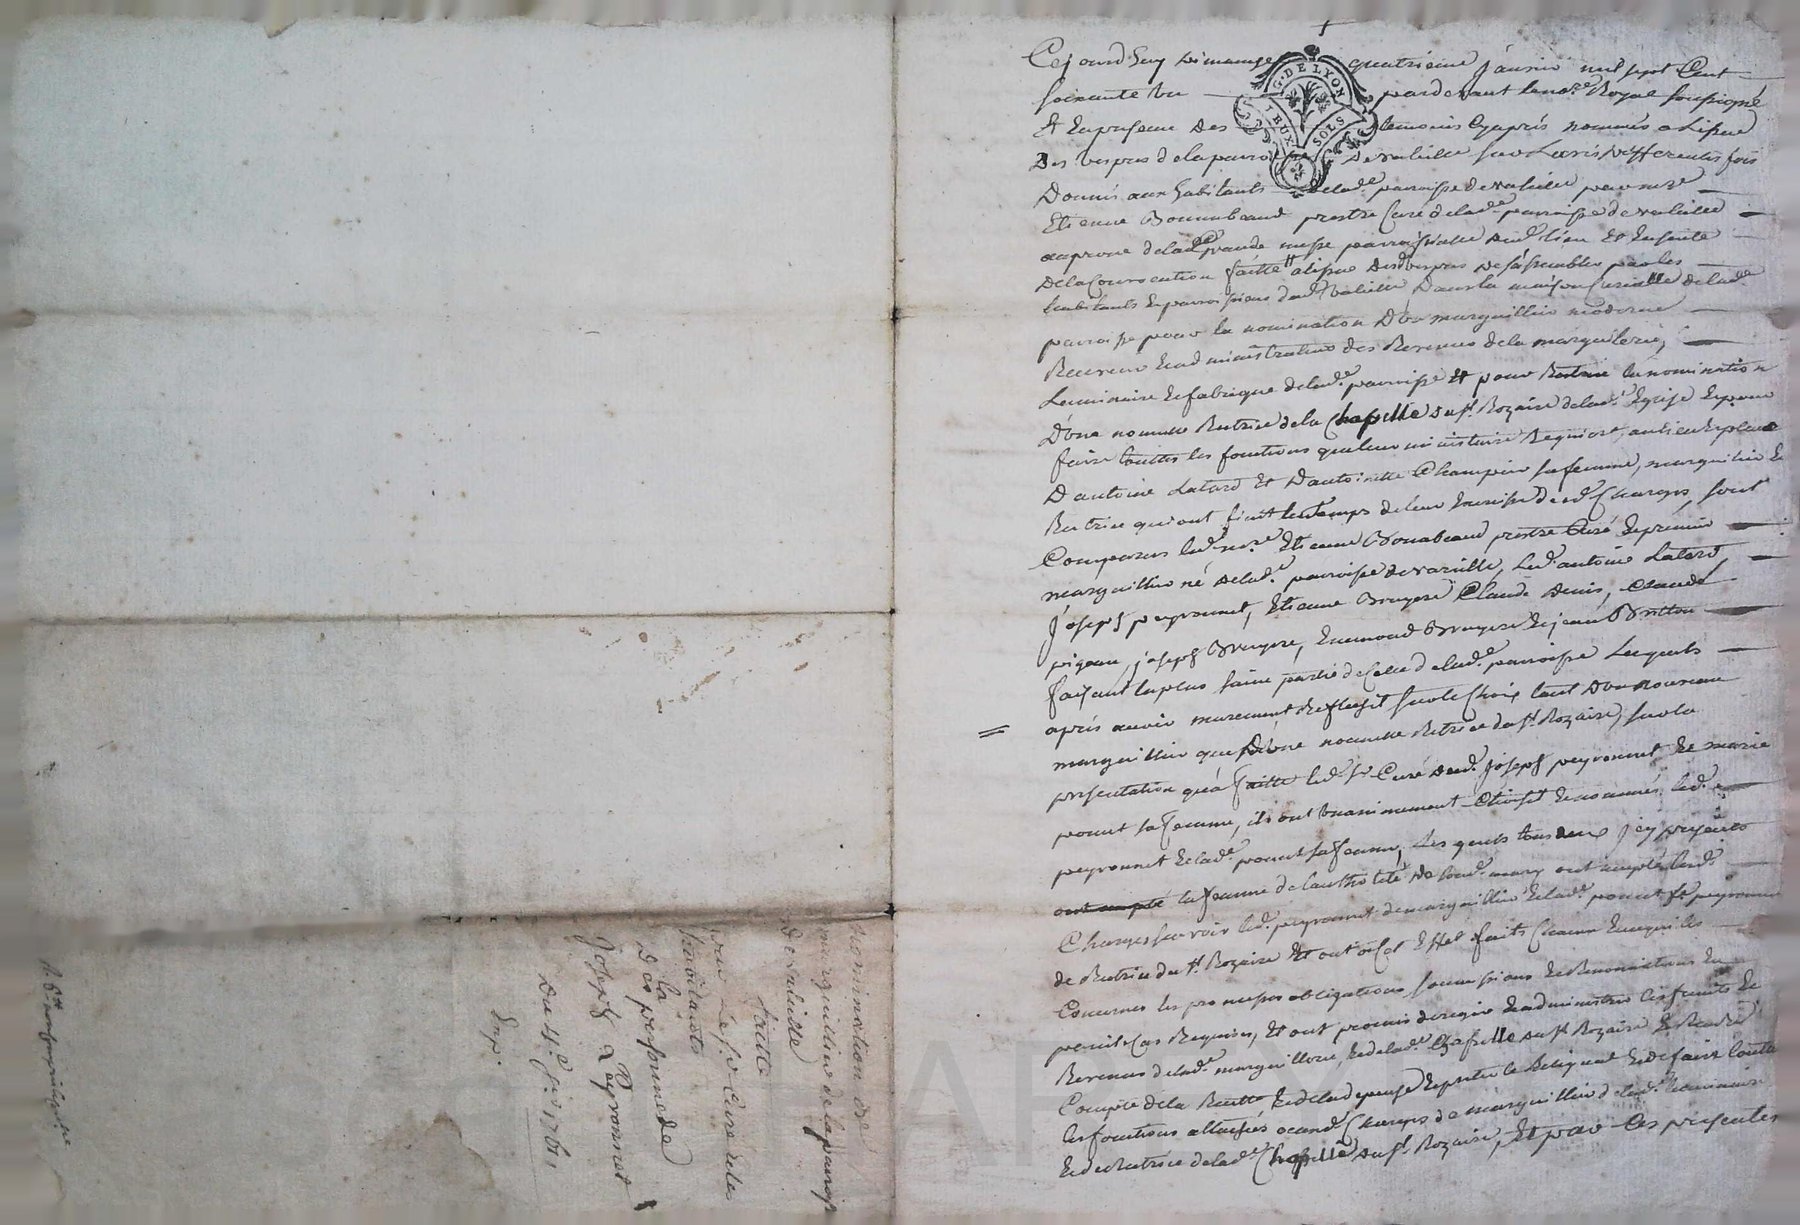 Cejourd'huy dimange quatrieme janvier mil sept Cent
soixante un pardevant le no.re Royal soussigné
Et En presence des temoins Cyaprés nommés a L'issue
Des vespres de la paroisse De valeille sur L'avis differentes fois
Donnés aux habitants de lad.e paroisse de valeille par m.re
Etienne Bonnabeaud prestre Curé de lad.e paroisse de valeille
au prone de la Grande messe paroissialle dud. lieu Et Ensuitte
De la Convocation faitte a l'issue desd. vespres de s'assembler par les
habitants Et paroissiens dud. valeille Dans la maison Curialle de lad.e
paroisse pour la nomination D'un marguillier moderne
Receveur Et administrateur des Revenus de la marguilerie,
Luminaire Et fabrique de lad.e paroisse Et pour la nomination
D'une nouvelle Rectrice de la Chapelle du s.t Rozaire de lad.e Eglise Et pour
faire touttes les fonctions que leur ministaire Requiert, au lieu Et place
D'antoine Latard Et D'antoinette Champier sa femme, marguilier Et
Rectrice qui ont finit le temps de leur Exercisse desd. Charges, sont
Comparus led. m.re Etienne Bonabeaud prestre Curé Et premier
marguillier né de lad.e paroisse de valeille, led. antoine Latard
Joseph peyronnet, Etienne Bruyere Claude Denis, Claude
pigeon, joseph Bruyere, Enemond Bruyere Et jean Britton
faisant la plus saine partie de Celle de lad.e paroisse Lesquels
aprés avoir murement Reflechit sur le Choix tant D'un nouveau
marguillier que D'une nouvelle Rectrice du s.t Rozaire, sur la
presentation qu'a faitte led. s.r Curé dud. Joseph peyronnet Et marie
ponnet sa femme, ils ont Unanimement Choisit Et nommés led.
peyronnet Et lad.e ponnet sa femme, Les quels tous deux Icy presents
ont accepté la femme de l'authorité de sond. mary ont accepté lesd.
Charges sçavoir led. peyronnet de marguillier Et lad.e ponnet f.e peyronnet
de Rectrice du s.t Rozaire Et ont a Cet Effet faits Chacun En ce qui les
Concernes les promesses obligations soumissions Et Renonciations En
pareil Cas Requises, Et ont promis de regir Et administrer les fruits Et
Revenus de lad.e marguillerie, Et de lad.e Chapelle du s.t Rozaire Et Rendre
Compte de la Recette Et de la depense Et prêter le Reliquat Et de faire toutes
les fonctions attachées auxd. Charges de marguillier de lad.e Luminaire
Et de Rectrice de lad.e Chapelle du s.t Rozaire, Et par Ces presentes
nomination de
marguillier de la paroisse
de valeille
faitte
par Le s.r Curé et les
habitants
de la
personne de
Joseph Peyronnet
Du 4.e j.er 1761
Exp.